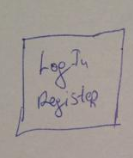 Log In
Register